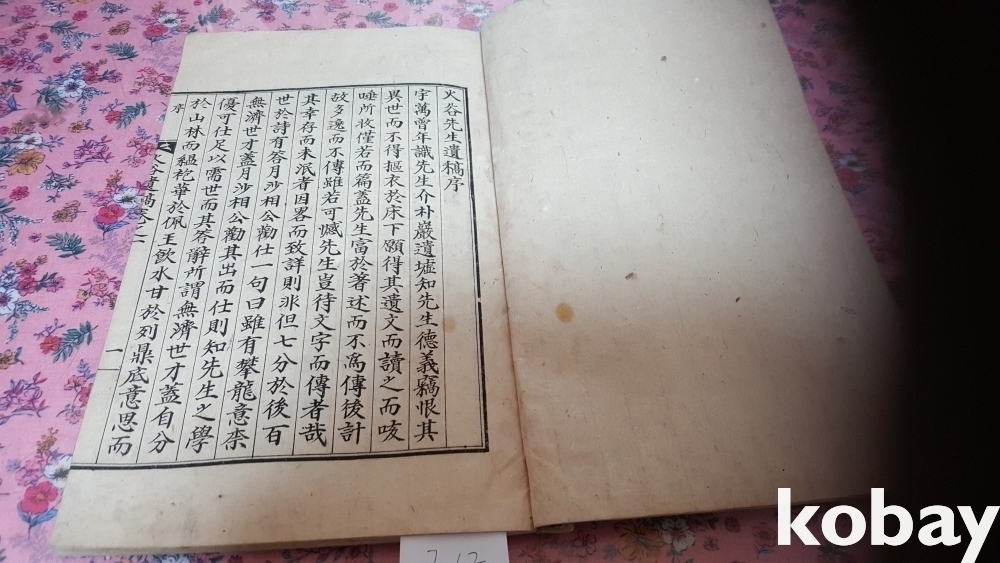 火谷先生遺稿序
宇萬曾年識先生介朴巖遺墟知先生德義竊恨其
異世而不得摳衣於床下願得其遺文而讀之而咳
唾所收僅若而篇蓋先生富於著述而不為傳後計
故多逸而不傳雖若可憾先生豈待文字而傳者哉
其幸存而未泯者因畧而致詳則非但七分於後百
世於詩有答月沙相公勸仕一句曰雖有攀龍意柰
無濟世才蓋月沙相公勸其出而仕則知先生之學
優可仕足以需世而其答辭所謂無濟世才蓋自分
於山林而縕袍華於佩玉飮水甘於列鼎底意思而
序
火谷遺稿卷之一
一
712
kobay